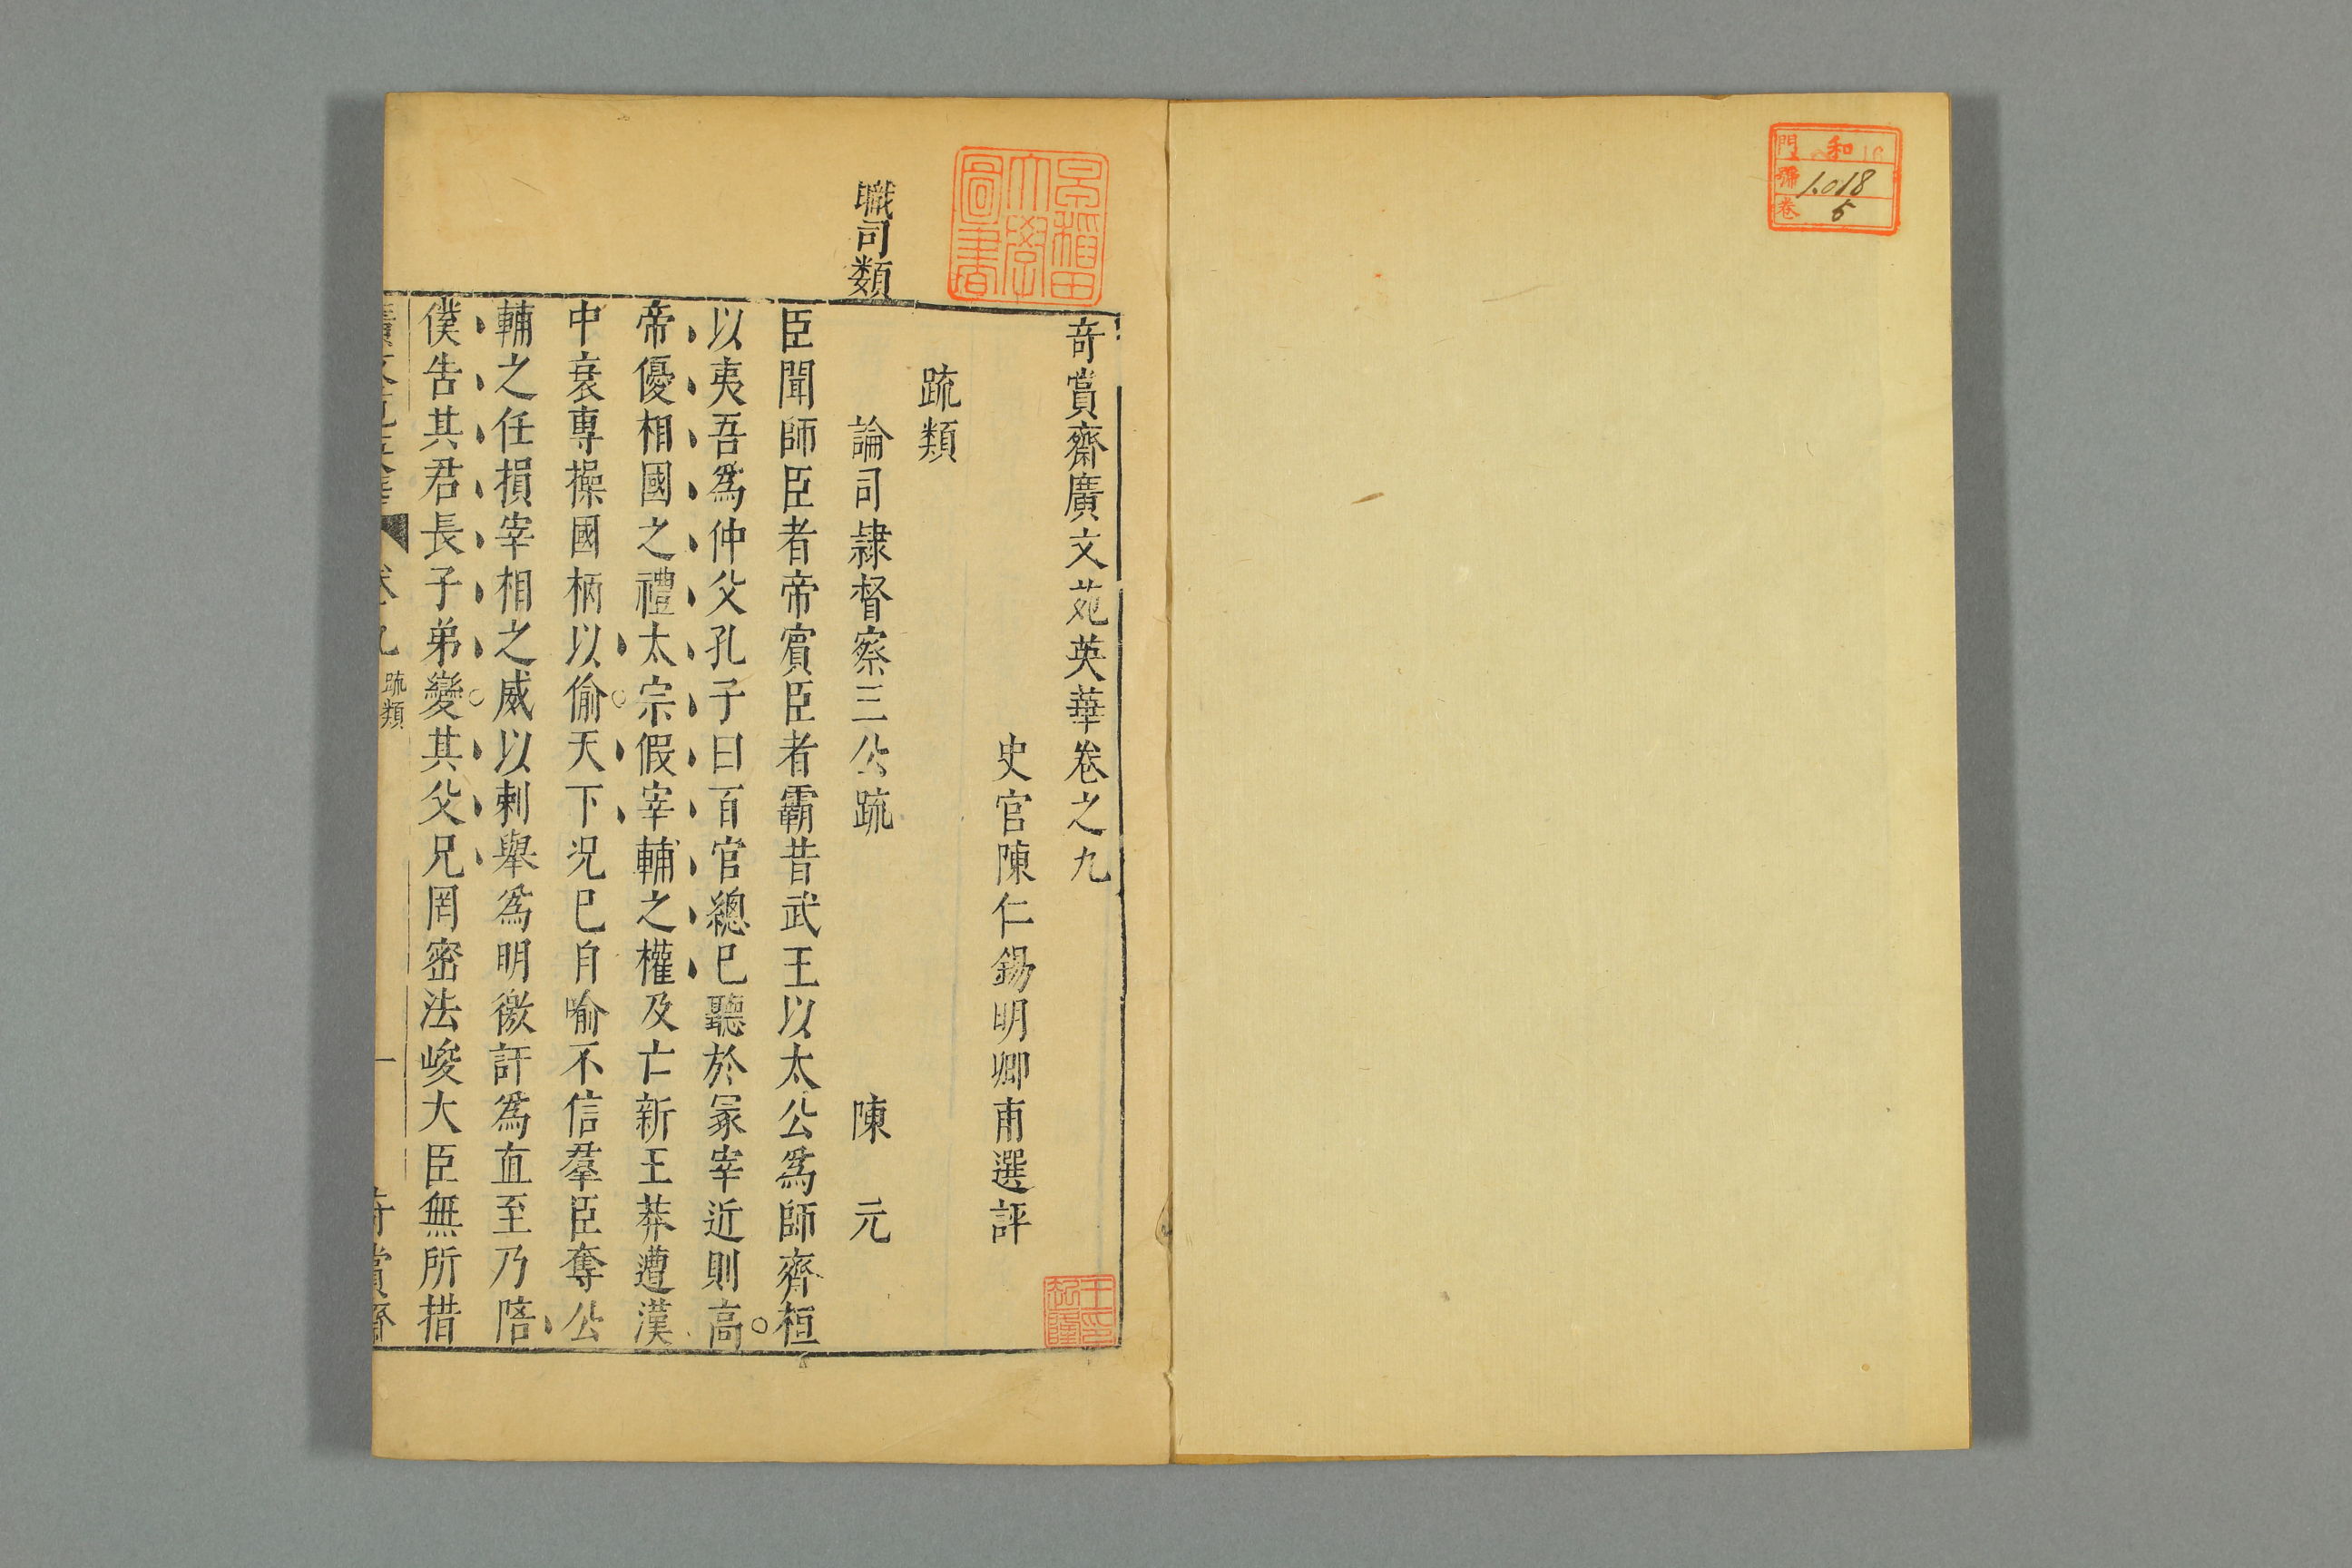 門 和
號 1.018
卷 5
早稲田大學圖書
奇賞齋廣文苑英華卷之九
史官陳仁錫明卿甫選評
疏類
職司類
論司隷督察三公疏 陳元
臣聞師臣者帝賓臣者霸昔武王以太公爲師齊桓
以夷吾爲仲父孔子曰百官總已聽於冢宰近則高
帝優相國之禮太宗假宰輔之權及亡新王莽遭漢
中衰專操國柄以偷天下況巳自喻不信羣臣奪公
輔之任損宰相之威以刺舉爲明徼訐爲直至乃陪
僕告其君長子弟變其父兄罔密法峻大臣無所措
疏類
一
奇賞齋